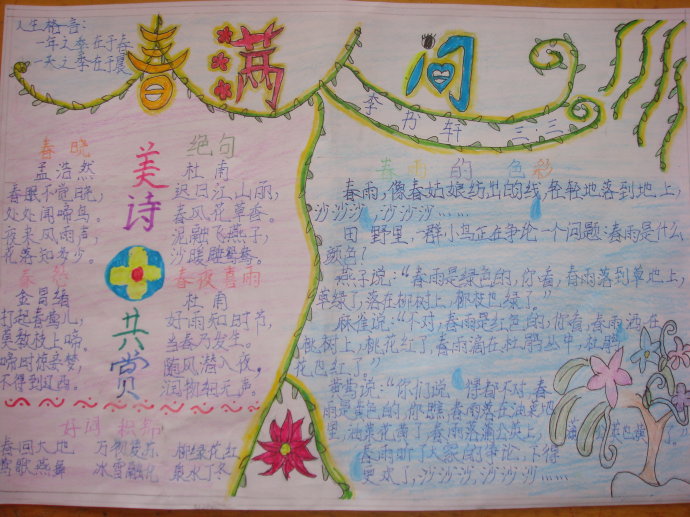 人生格言:
一年之季在于春
一天之季在于晨
春满
间
李乃轩 三:三
春晓
孟浩然
春眠不觉晓,
处处闻啼鸟。
夜来风雨声,
花落知多少。
春怨
金昌绪
打起黄莺儿,
莫教枝上啼。
啼时惊妾梦,
不得到辽西。
美诗
共赏
绝句
杜甫
迟日江山丽,
春风花草香。
泥融飞燕子,
沙暖睡鸳鸯。
春夜喜雨
杜甫
好雨知时节,
当春乃发生。
随风潜入夜,
润物细无声。
好词积锦
春回大地 万物复苏 柳绿花红
莺歌燕舞 冰雪融化 泉水丁冬
春雨的色彩
春雨,像春姑娘纺出的线,轻轻地落到地上,
沙沙沙,沙沙沙……
田野里,一群小鸟正在争论一个问题:春雨是什么
颜色?
燕子说:“春雨是绿色的,你看,春雨落到草地上,
草绿了,落在柳树上,柳枝也绿了。”
麻雀说:“不对,春雨是红色的,你看,春雨洒在
桃树上,桃花红了,春雨滴在杜鹃丛中,杜鹃
花也红了。”
黄莺说:“你们说得都不对,春
雨是黄色的,你瞧,春雨落在油菜地
里,油菜花黄了,春雨落蒲公英上,
春雨听了大家的争论,下得
更欢了,沙沙沙,沙沙沙……